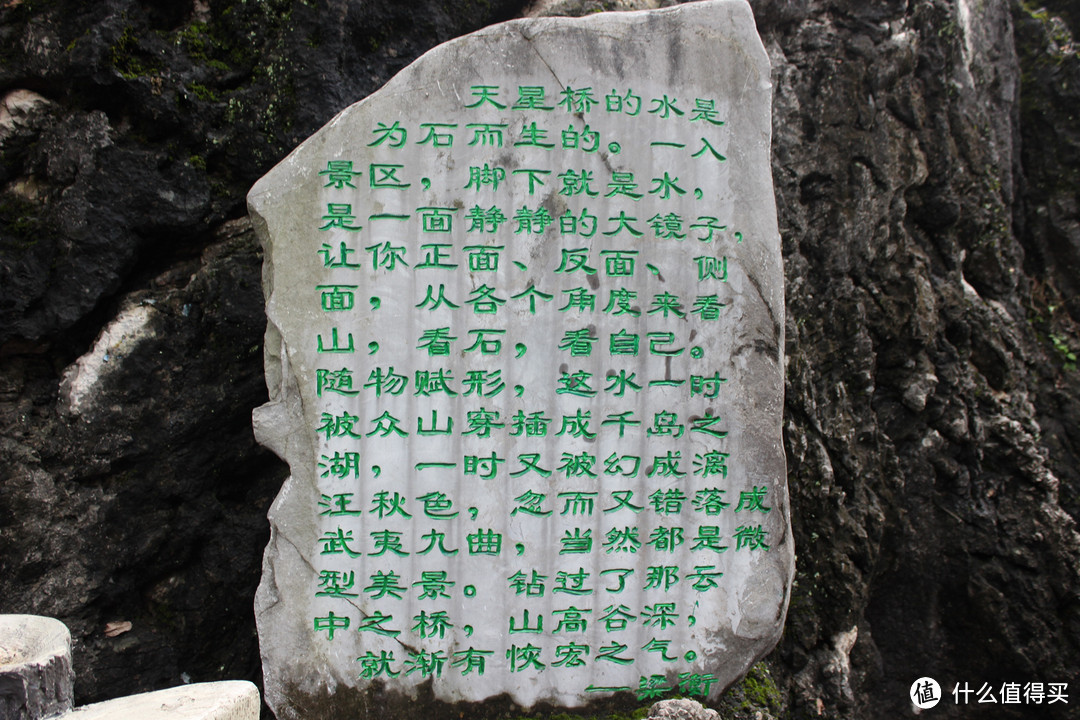 天星桥的水是
为石而生的。一入
景区，脚下就是水，
是一面静静的大镜子，
让你正面、反面、侧
面，从各个角度来看
山，看石，看自己。
随物赋形，这水一时
被众山穿插成千岛之
湖，一时又被幻成漓
汪秋色，忽而又错落成
武夷九曲，当然都是微
型美景。钻过了那云
中之桥，山高谷深，
就渐有恢宏之气。
——梁衡
值 什么值得买